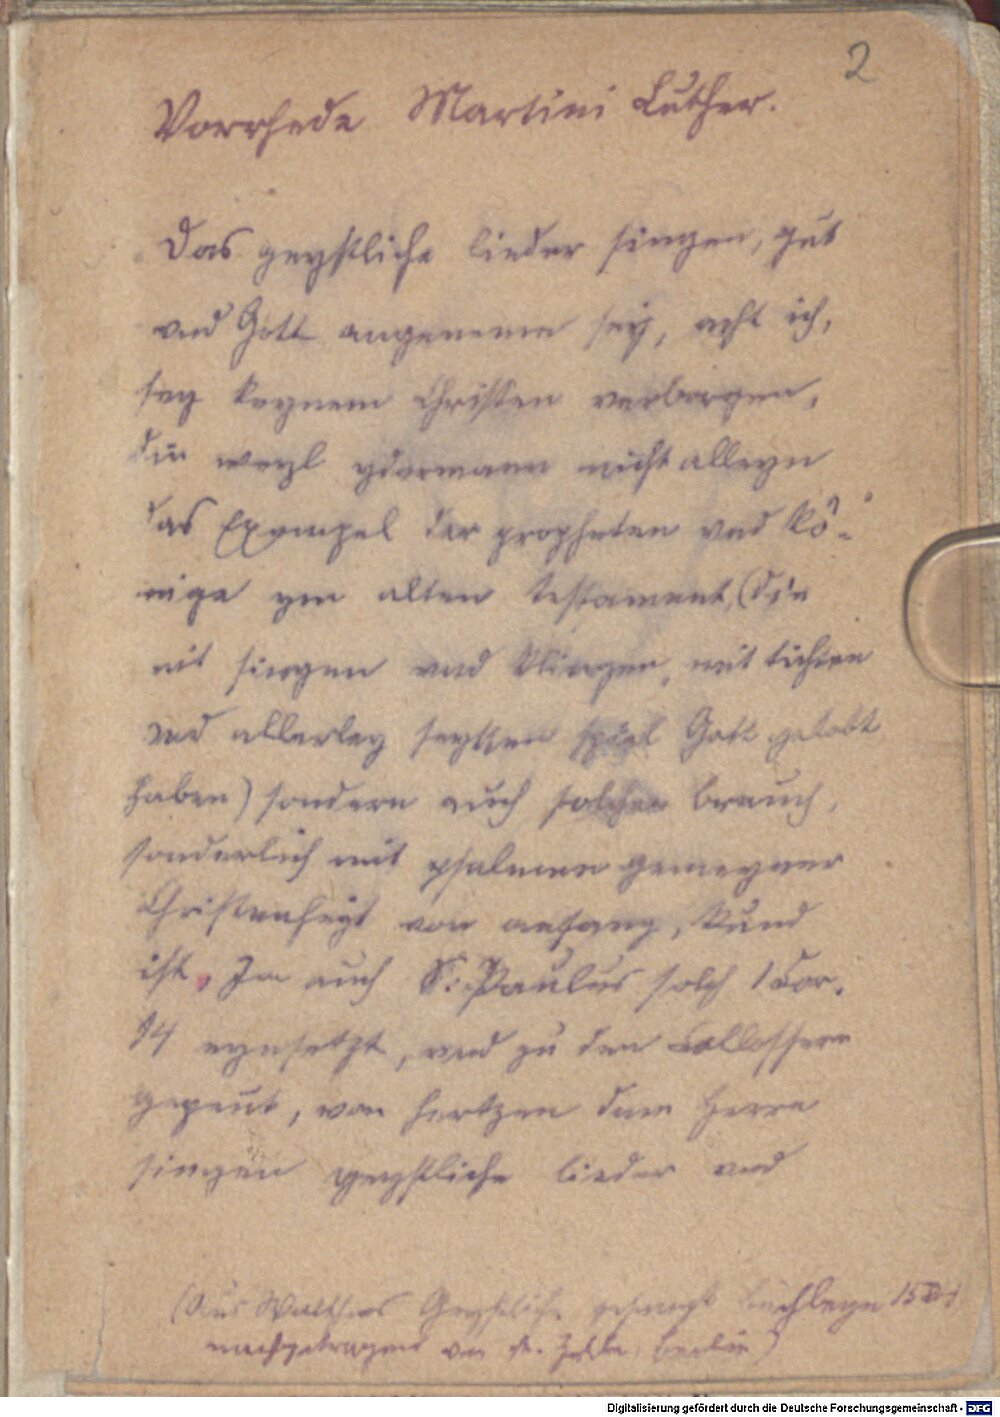 2
Vorrhede Martini Luther.
Das geystliche lieder singen, gut
vnd Gott angeneme sey, acht ich,
sey keynem Christen verborgen,
die weyl yderman nicht alleyn
das Exempel der propheten vnd kö-
nige ym alten testament, (die
mit singen vnd klingen, mit tichten
vnd allerley seytten spiel Gott gelobt
haben) sondern auch solcher brauch,
sonderlich mit psalmen gemeyner
Christenheyt von anfang, kund
ist, Ja auch S. Paulus solch 1 Cor.
14 eynsetzt, vnd zu den Collossern
gepeut, von hertzen dem Herrn
singen geystliche lieder vnd
(Aus Walthers Geystliche gesangk buchleyn 1524
nachgetragen von Berlin)
Digitalisierung gefördert durch die Deutsche Forschungsgemeinschaft - DFG